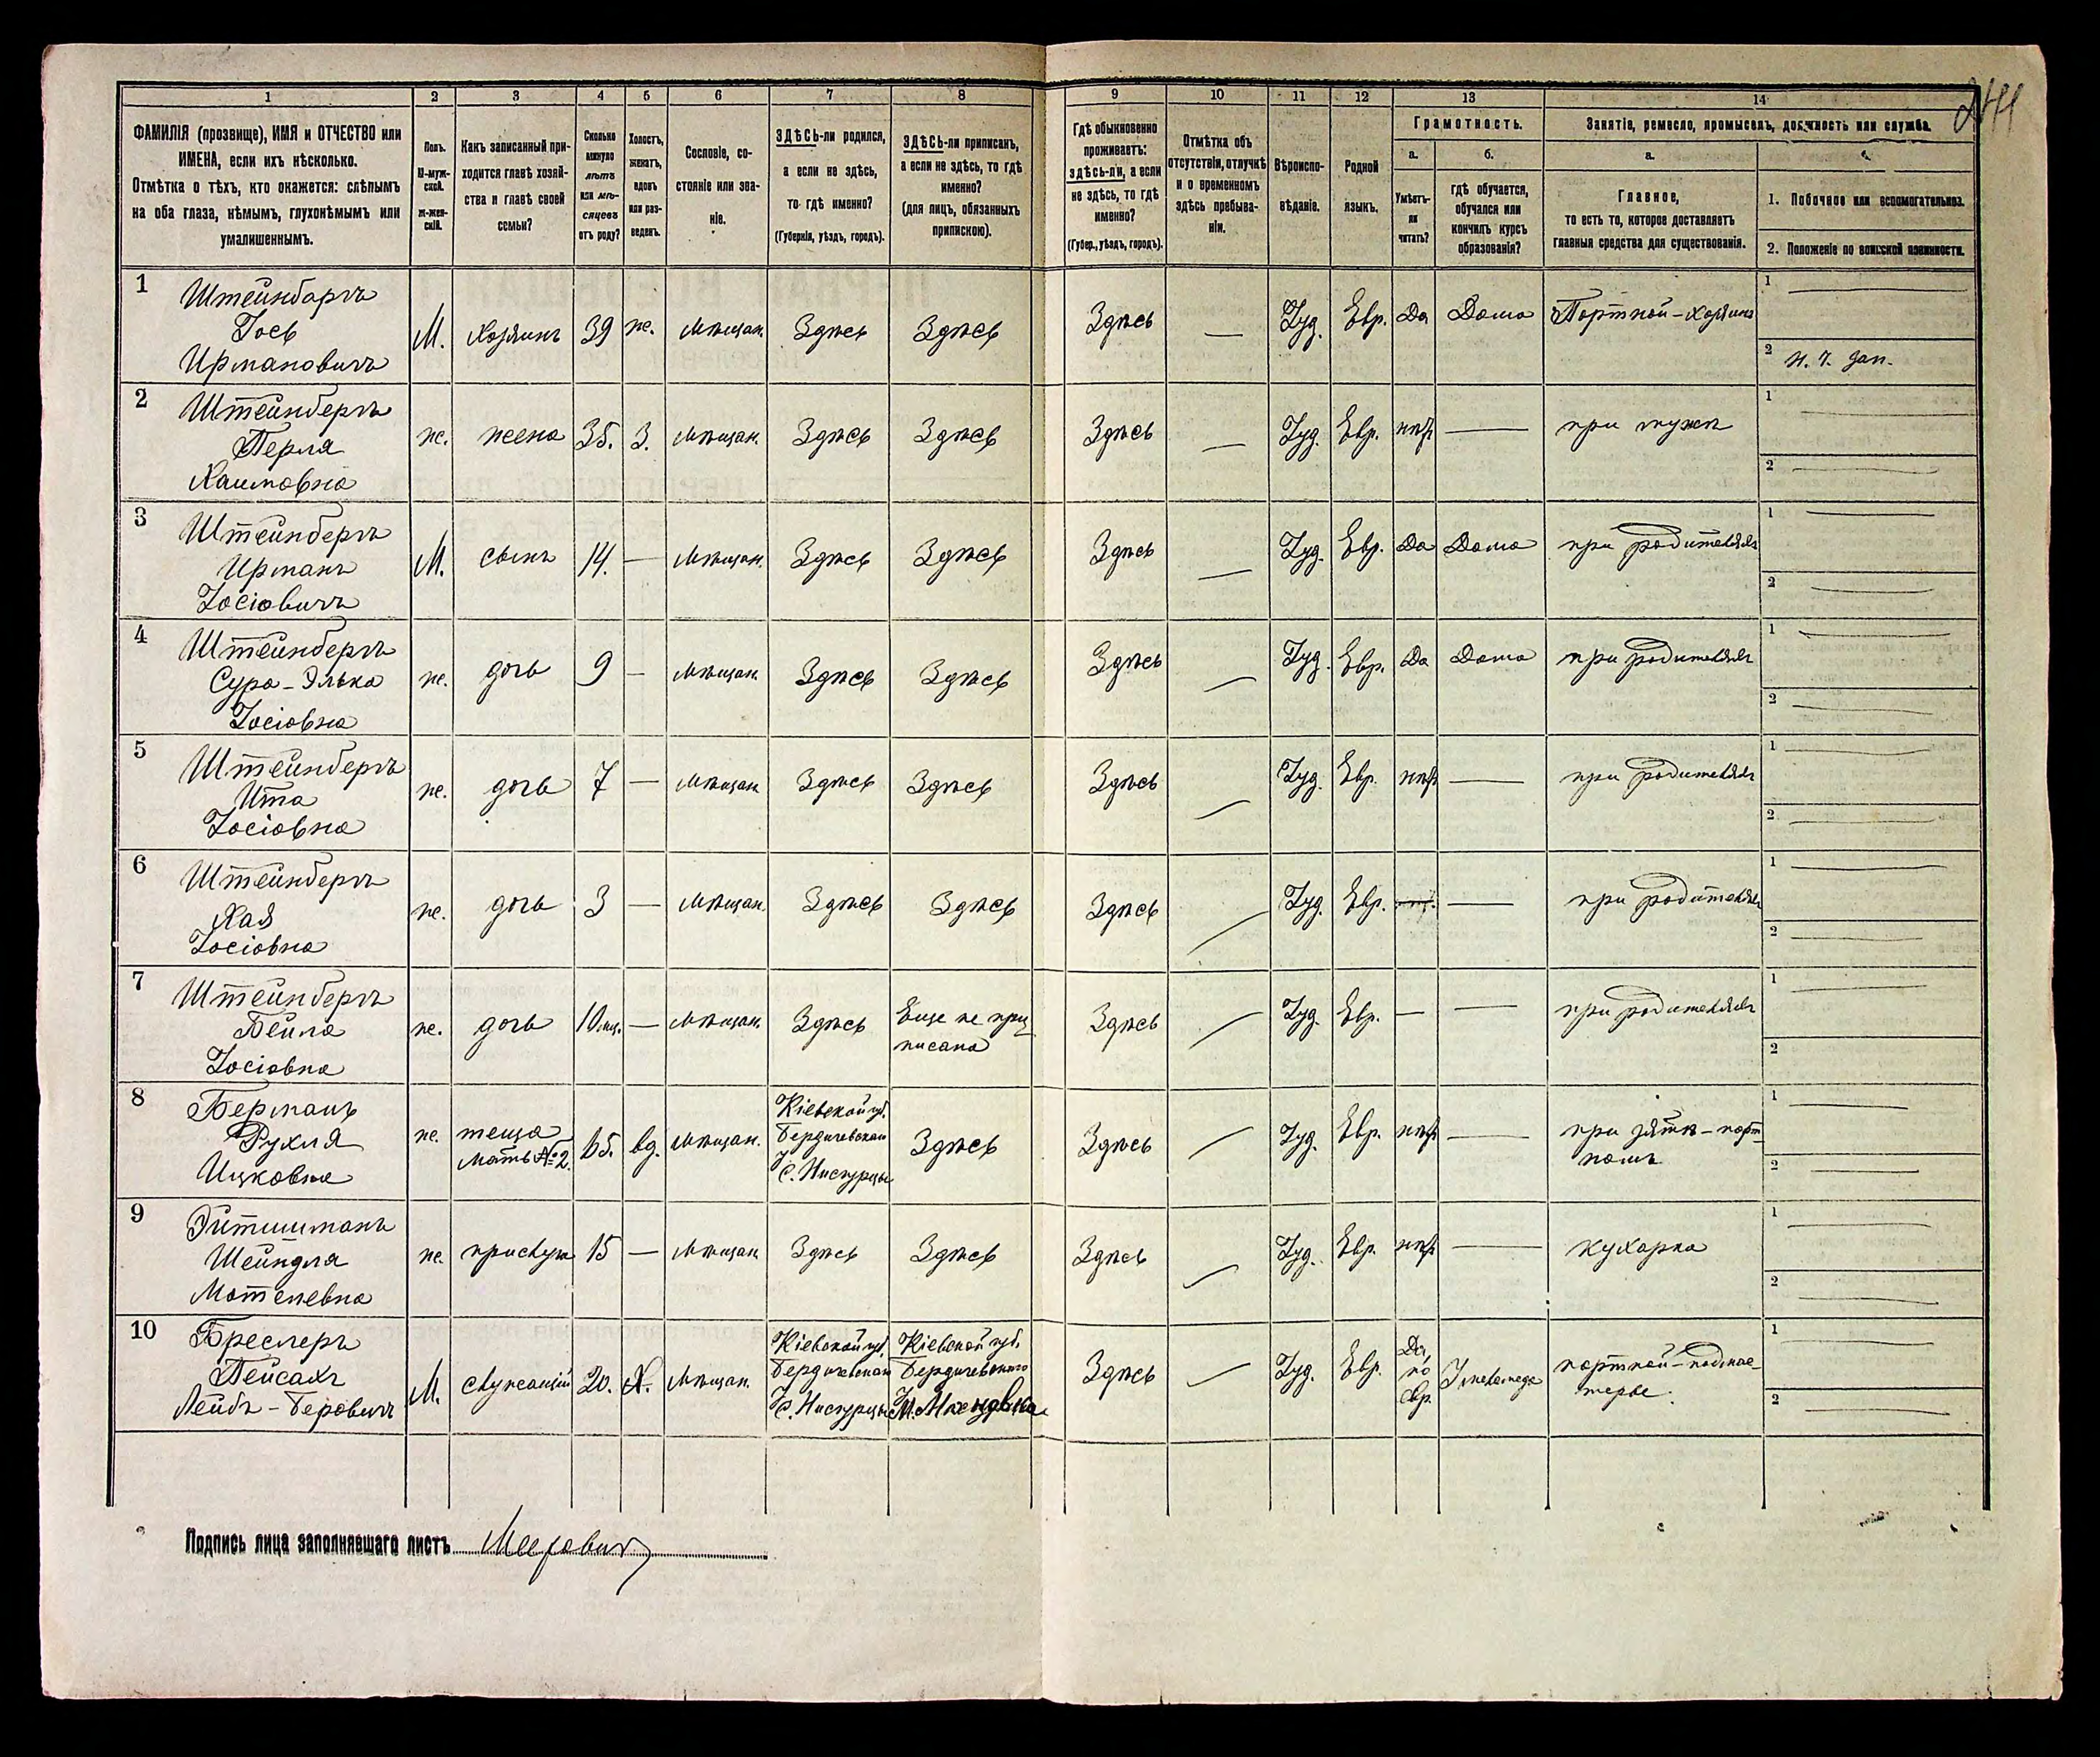 1 2 3 4 5 6 7 8 9 10 11 12 13 14
ФАМИЛІЯ (прозвище), ИМЯ и ОТЧЕСТВО или
ИМЕНА, если ихъ нѣсколько.
Отмѣтка о тѣхъ, кто окажется: слѣпымъ
на оба глаза, нѣмымъ, глухонѣмымъ или
умалишеннымъ.
Полъ.
М-муж-
ской.
Ж-жен-
скій.
Какъ записанный при-
ходится главѣ хозяй-
ства и главѣ своей
семьи?
Сколько
минуло
лѣтъ
или мѣ-
сяцевъ
отъ роду?
Холостъ,
женатъ,
вдовъ
или раз-
веденъ.
Сословіе, со-
стояніе или зва-
ніе.
ЗДѢСЬ-ли родился,
а если не здѣсь,
то гдѣ именно?
(Губернія, уѣздъ, городъ).
ЗДѢСЬ-ли приписанъ,
а если не здѣсь, то гдѣ
именно?
(для лицъ, обязанныхъ
припискою).
Гдѣ обыкновенно
проживаетъ:
здѣсь-ли, а если
не здѣсь, то гдѣ
именно?
(Губер., уѣздъ, городъ).
Отмѣтка объ
отсутствіи, отлучкѣ
и о временномъ
здѣсь пребыва-
ніи.
Вѣроиспо-
вѣданіе.
Родной
языкъ.
Грамотность.
а.
Умѣетъ-
ли
читать?
б.
Гдѣ обучается,
обучался или
кончилъ курсъ
образованія?
Занятіе, ремесло, промыселъ, должность или служба.
а.
Главное,
то есть то, которое доставляетъ
главныя средства для существованія.
1. Побочное или вспомогательное.
2. Положеніе по воинской повинности.
1 Штейнбергъ
Іось
Ирмановичъ
М. хозяинъ 39 же. мѣщан. Здѣсь Здѣсь Здѣсь — Іуд. Евр. Да Дома Портной-хозяинъ
1
2
2 Штейнбергъ
Перля
Хаимовна
же. жена 35. З. мѣщан. Здѣсь Здѣсь Здѣсь — Іуд. Евр. нѣт — при мужѣ
1
2
3 Штейнбергъ
Ирманъ
Іосіовичъ
М. сынъ 14. — мѣщан. Здѣсь Здѣсь Здѣсь — Іуд. Евр. Да Дома при родителяхъ
1
2
4 Штейнбергъ
Сура-Элька
Іосіовна
же. дочь 9 — мѣщан. Здѣсь Здѣсь Здѣсь — Іуд. Евр. Да Дома при родителяхъ
1
2
5 Штейнбергъ
Ита
Іосіовна
же. дочь 7 — мѣщан. Здѣсь Здѣсь Здѣсь — Іуд. Евр. нѣт — при родителяхъ
1
2
6 Штейнбергъ
Хая
Іосіовна
же. дочь 3 — мѣщан. Здѣсь Здѣсь Здѣсь — Іуд. Евр. — при родителяхъ
1
2
7 Штейнбергъ
Бейла
Іосіовна
же. дочь 10 мц. — мѣщан. Здѣсь Еще не при-
писана
Здѣсь — Іуд. Евр. — — при родителяхъ
1
2
8 Берманъ
Рухля
Ицковна
же. теща
мать № 2.
65. вд. мѣщан. Кіевской губ.
Бердичевскаго
Здѣсь Здѣсь — Іуд. Евр. нѣт — при зятѣ-порт-
номъ
1
2
9
Шейндля
Мотелевна
же. прислуга 15 — мѣщан. Здѣсь Здѣсь Здѣсь — Іуд. Евр. нѣт — кухарка
1
2
10 Бреслеръ
Пейсахъ
Лейбъ-Беровичъ
М. служащій 20. Х. мѣщан. Кіевской губ.
Бердичевскаго
Кіевской губ.
Бердичевскаго
Здѣсь — Іуд. Евр. Да,
по
евр.
портной-подмас-
терье.
1
2
Подпись лица заполнявшаго листъ Меерович